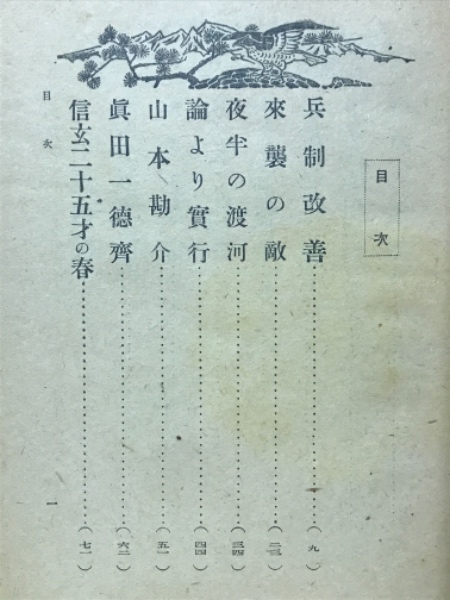 目次
兵制改善……（九）
來襲の敵……（二三）
夜半の渡河……（三四）
論より實行……（四四）
山本勘介……（五一）
眞田一德齊……（六二）
信玄二十五才の春……（七一）
目次
一